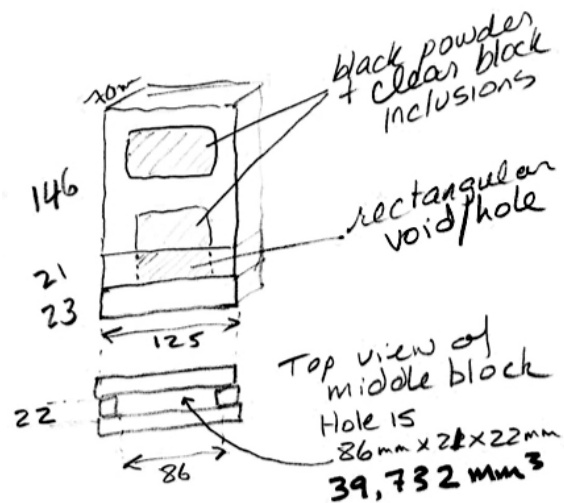 black powder
+ clear block
inclusions
70mm
146
rectangular
void/hole
21
23
125
Top view of
middle block
Hole is
22
86mm x 21 x 22mm
86
39,732 mm³